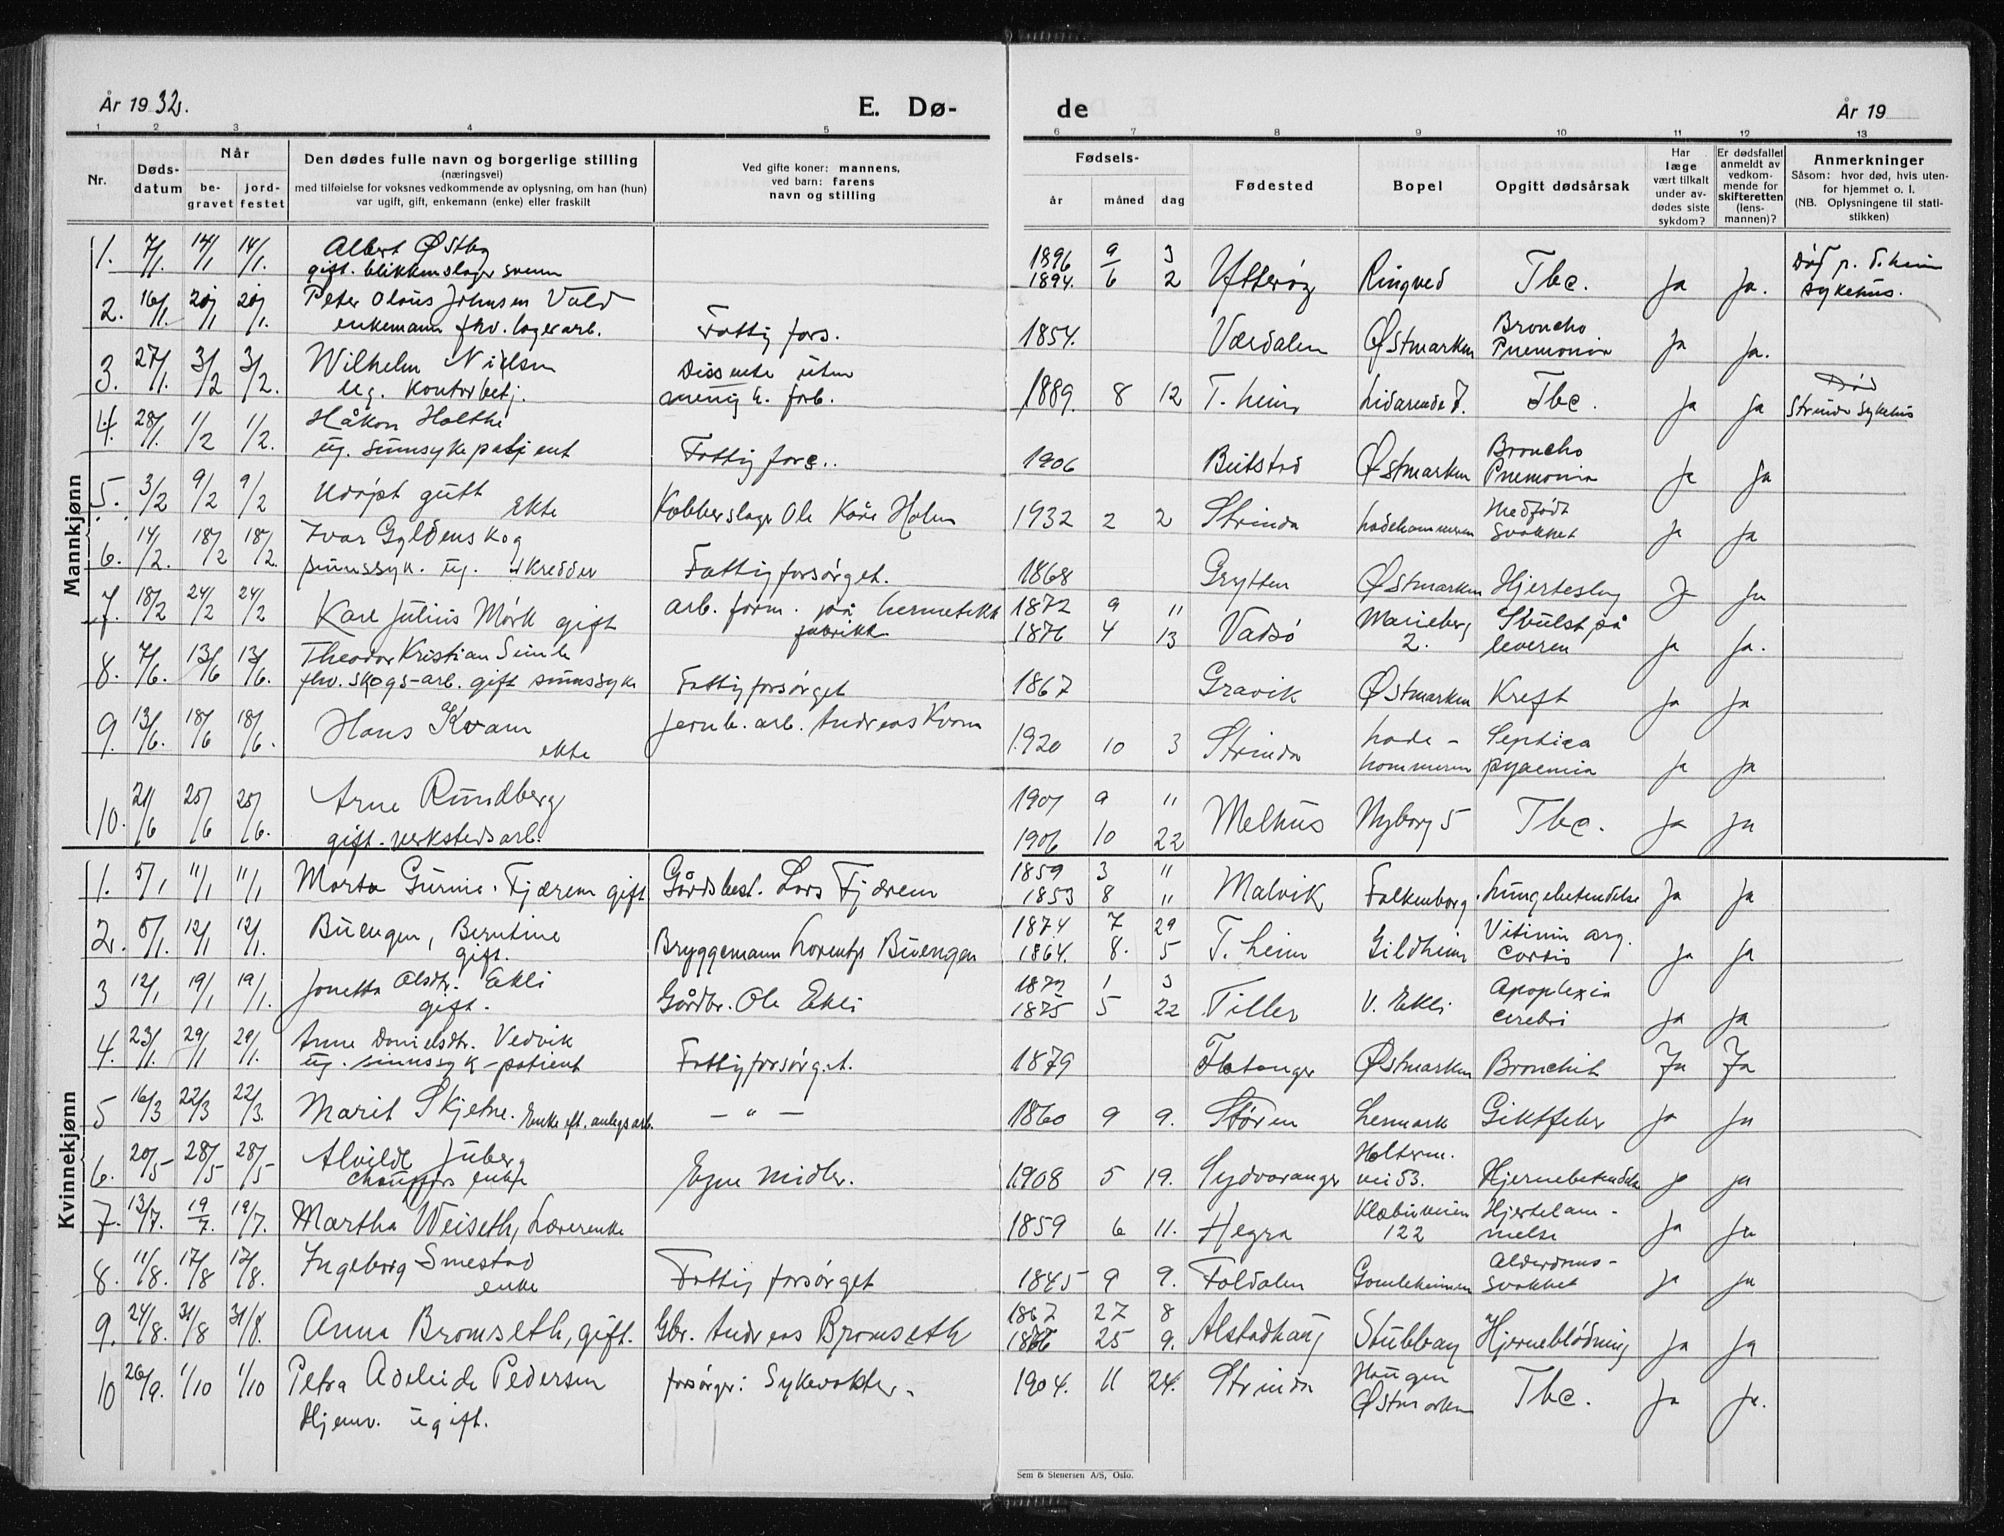 År 1932.
E. Dø-
de
År 19
1 2 3 4 5 6 7 8 9 10 11 12 13
Nr.
Døds-
datum
Når
be-
gravet
jord-
festet
Den dødes fulle navn og borgerlige stilling
(næringsvei)
med tilføielse for voksnes vedkommende av oplysning, om han (hun)
var ugift, gift, enkemann (enke) eller fraskilt
Ved gifte koner: mannens,
ved barn: farens
navn og stilling
Fødsels-
år måned dag
Fødested
Bopel
Opgitt dødsårsak
Har
læge
vært tilkalt
under av-
dødes siste
sykdom?
Er dødsfallet
anmeldt av
vedkom-
mende for
skifteretten
(lens-
mannen)?
Anmerkninger
Såsom: hvor død, hvis uten-
for hjemmet o. l.
(NB. Oplysningene til stati-
stikken)
Mannkjønn
1. 7/1. 14/1 14/1. Albert Østby 1896 9 3
gift. blikkenslagersvenn 1894. 6 2 Ytterøy Ringved Tbc. Ja Ja. Død p. T.heim
sykehus.
2. 16/1. 20/1 20/1. Peter Olaus Johnsen Vald
enkemann fhv. lagerarb. Fattig fors. 1854. Værdalen Østmarken Broncho
Pnemonia Ja Ja.
3. 27/1. 3/2 3/2. Wilhelm Nielsen Dissente uten
ug. kontorbetj. menigh. forb. 1889. 8 12 T.heim Tbc. Ja Ja Død
Strinda sykehus
4. 28/1. 1/2 1/2. Håkon Holthe
ug. sinnsykepatient Fattigfors. 1906 Beitstad Østmarken Broncho
Pnemonia Ja Ja
5. 3/2 9/2 9/2 Udøpt gutt
Ekte Kobberslager Ole Kåre Holm 1932 2 2 Strinda Ladehammeren Medfødt
svakhet Ja Ja
6. 14/2. 18/2 18/2. Ivar Gyldenskog
sinnssyk. ug. skredder Fattigforsørget. 1868 Grytten Østmarken Hjerteslag Ja Ja
7. 18/2 24/2 24/2 Karl Julius Mørk gift arb. form. på hermetikk
fabrikk 1872 9 "
1876 4 13 Vadsø Marieberg
2. Svulst på
leveren Ja Ja.
8. 7/6. 13/6 13/6. Theodor Kristian
fhv. skogs-arb. gift sinnssyk Fattigforsørget 1867 Gravik Østmarken Kreft Ja Ja
9. 13/6. 18/6 18/6. Hans Kvam
ekte Jernb. arb. Andreas Kvam 1920 10 3 Strinda Lade-
hammeren Septica
pyaemia Ja Ja
10. 21/6 25/6 25/6. Arne Rundberg 1901 9 "
gift. verkstedsarb. 1906 10 22 Melhus Nyborg 5 Tbc. Ja Ja
Kvinnekjønn
1. 5/1 11/1 11/1 Marta Gurine Fjærem gift Gårdsbest. Lars Fjærem 1859 3 "
1853 8 " Malvik Falkenborg. Lungebetendelse Ja Ja
2. 5/1. 12/1 12/1. Buengen, Berntine
gift. Bryggemann Lorentz Buengen 1874 7 29
1864. 8. 5 T.heim Gildheim Vitium org.
Cordis Ja Ja
3 12/1 19/1 19/1. Jonetta Olsdtr. Ekli
gift. Gårdbr. Ole Ekli 1872 1 3
1875 5 22 Tiller V. Ekli Apoplexia
cerebri Ja Ja
4. 23/1. 29/1 29/1. Anne Danielsdtr. Vedvik
ug. sinnssyk-patient Fattigforsørget. 1879 Flatanger Østmarken Bronchit Ja Ja
5 16/3 22/3 22/3. Marit Skjetne. Enke eft. anlegsarb. - " - 1860 9 9. Støren Lenmark Giktfeber Ja Ja
6. 20/5 28/5 28/5 Alvilde Juberg
Chaufførs enke Egne midler. 1908 5 19. Sydvaranger Holterm.
vei 53. Hjernebetendelse Ja Ja
7. 13/7. 19/7. 19/7. Martha Weiseth, Lærerenke 1859 6 11. Hegra Klæbuveien
122 Hjertelam-
melse Ja Ja
8. 11/8. 17/8 17/8. Ingeborg Smestad
enke Fattigforsørget 1845 9 9. Foldalen Gamleheimen Alderdoms-
svakhet Ja Ja
9. 24/8. 31/8 31/8. Anna Bromseth, gift. Gbr. Andreas Bromseth 1867 27 8
1866 25 9. Alstadhaug Stubban Hjerneblødning Ja Ja
10 26/9. 1/10 1/10 Petra Adeleide Pedersen
Hjemv. ugift. forsørger: Sykevokter. 1904. 11 24. Strinda Haugen
Østmarken Tbc. Ja Ja.
Sem & Stenersen A/S, Oslo.